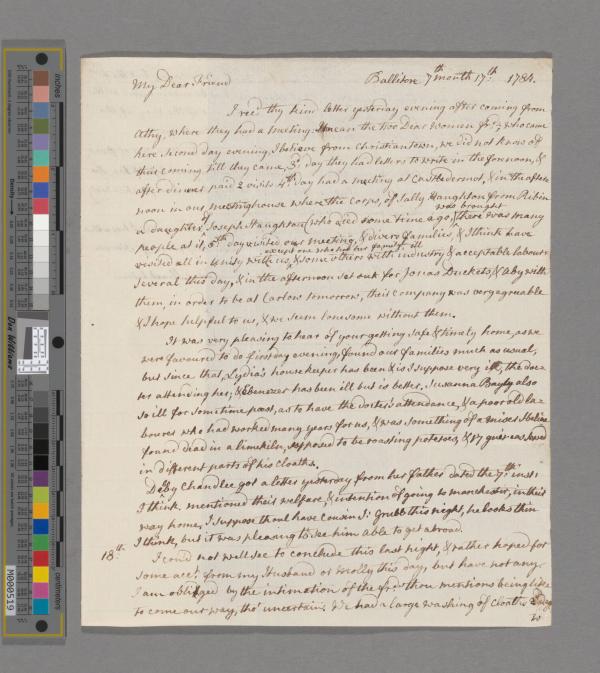 My Dear Friend Balliton 7th month 17th 1784.
I recd thy kind letter yesterday evening after coming from
Athy, where they had a meeting. I mean the two Dear women frds who came
here second day evening, I believe from Christianstown, we did not know of
their coming till they came, 3d day they had letters to write in the forenoon, &
after dinner paid 2 visits 4th day had a meeting at Castledermot, & in the after
noon in our meetinghouse where the corps, of Sally Haughton from Ribin
was brought
a daughter of Joseph Haughton (who died some time ago, there was many
people at it, 5th day visited our meeting, & divers families, & I think have
except one who had her family ill
visited all in Unity with us, & some others with industry & acceptable labour
several this day, & in the afternoon set out for Jonas Ducketts, & Aby with
them, in order to be at Carlow tomorrow, their company was very agreeable
& I hope helpful to us, & we seem lonesome without them.
It was very pleasing to hear of your getting safe & timely home, as we
were favoured to do first day evening, found our families much as usual,
but since that, Lydia's housekeeper has been & is I suppose very ill, the doc-
tor attending her; & Ebenezer has been ill but is better. Susanna Bayly also
so ill for sometime past, as to have the doctor's attendance, & a poor old la-
bourer who had worked many years for us, & was something of a miser I believe
found dead in a limekiln, supposed to be roasting potatoes, & 17 guineas sewed
in different parts of his cloaths.
Deby Chandlee got a letter yesterday from her father dated the 7th inst:
I think mentioned their welfare, & intention of going to Manchester, in their
way home, I suppose thou'l have cousin S: Grubb this night, he looks thin
I think, but it was pleasing to see him able to get abroad.
18th. I could not well see to conclude this last night, & rather hoped for
some acct. from my Husband or Molly this day, but have not any.
I am obliged by the intimation of the frds thou mentions being like
to come our way, tho' uncertain. We had a large washing of cloaths
to
inches
centimetres
Don Williams
M000519